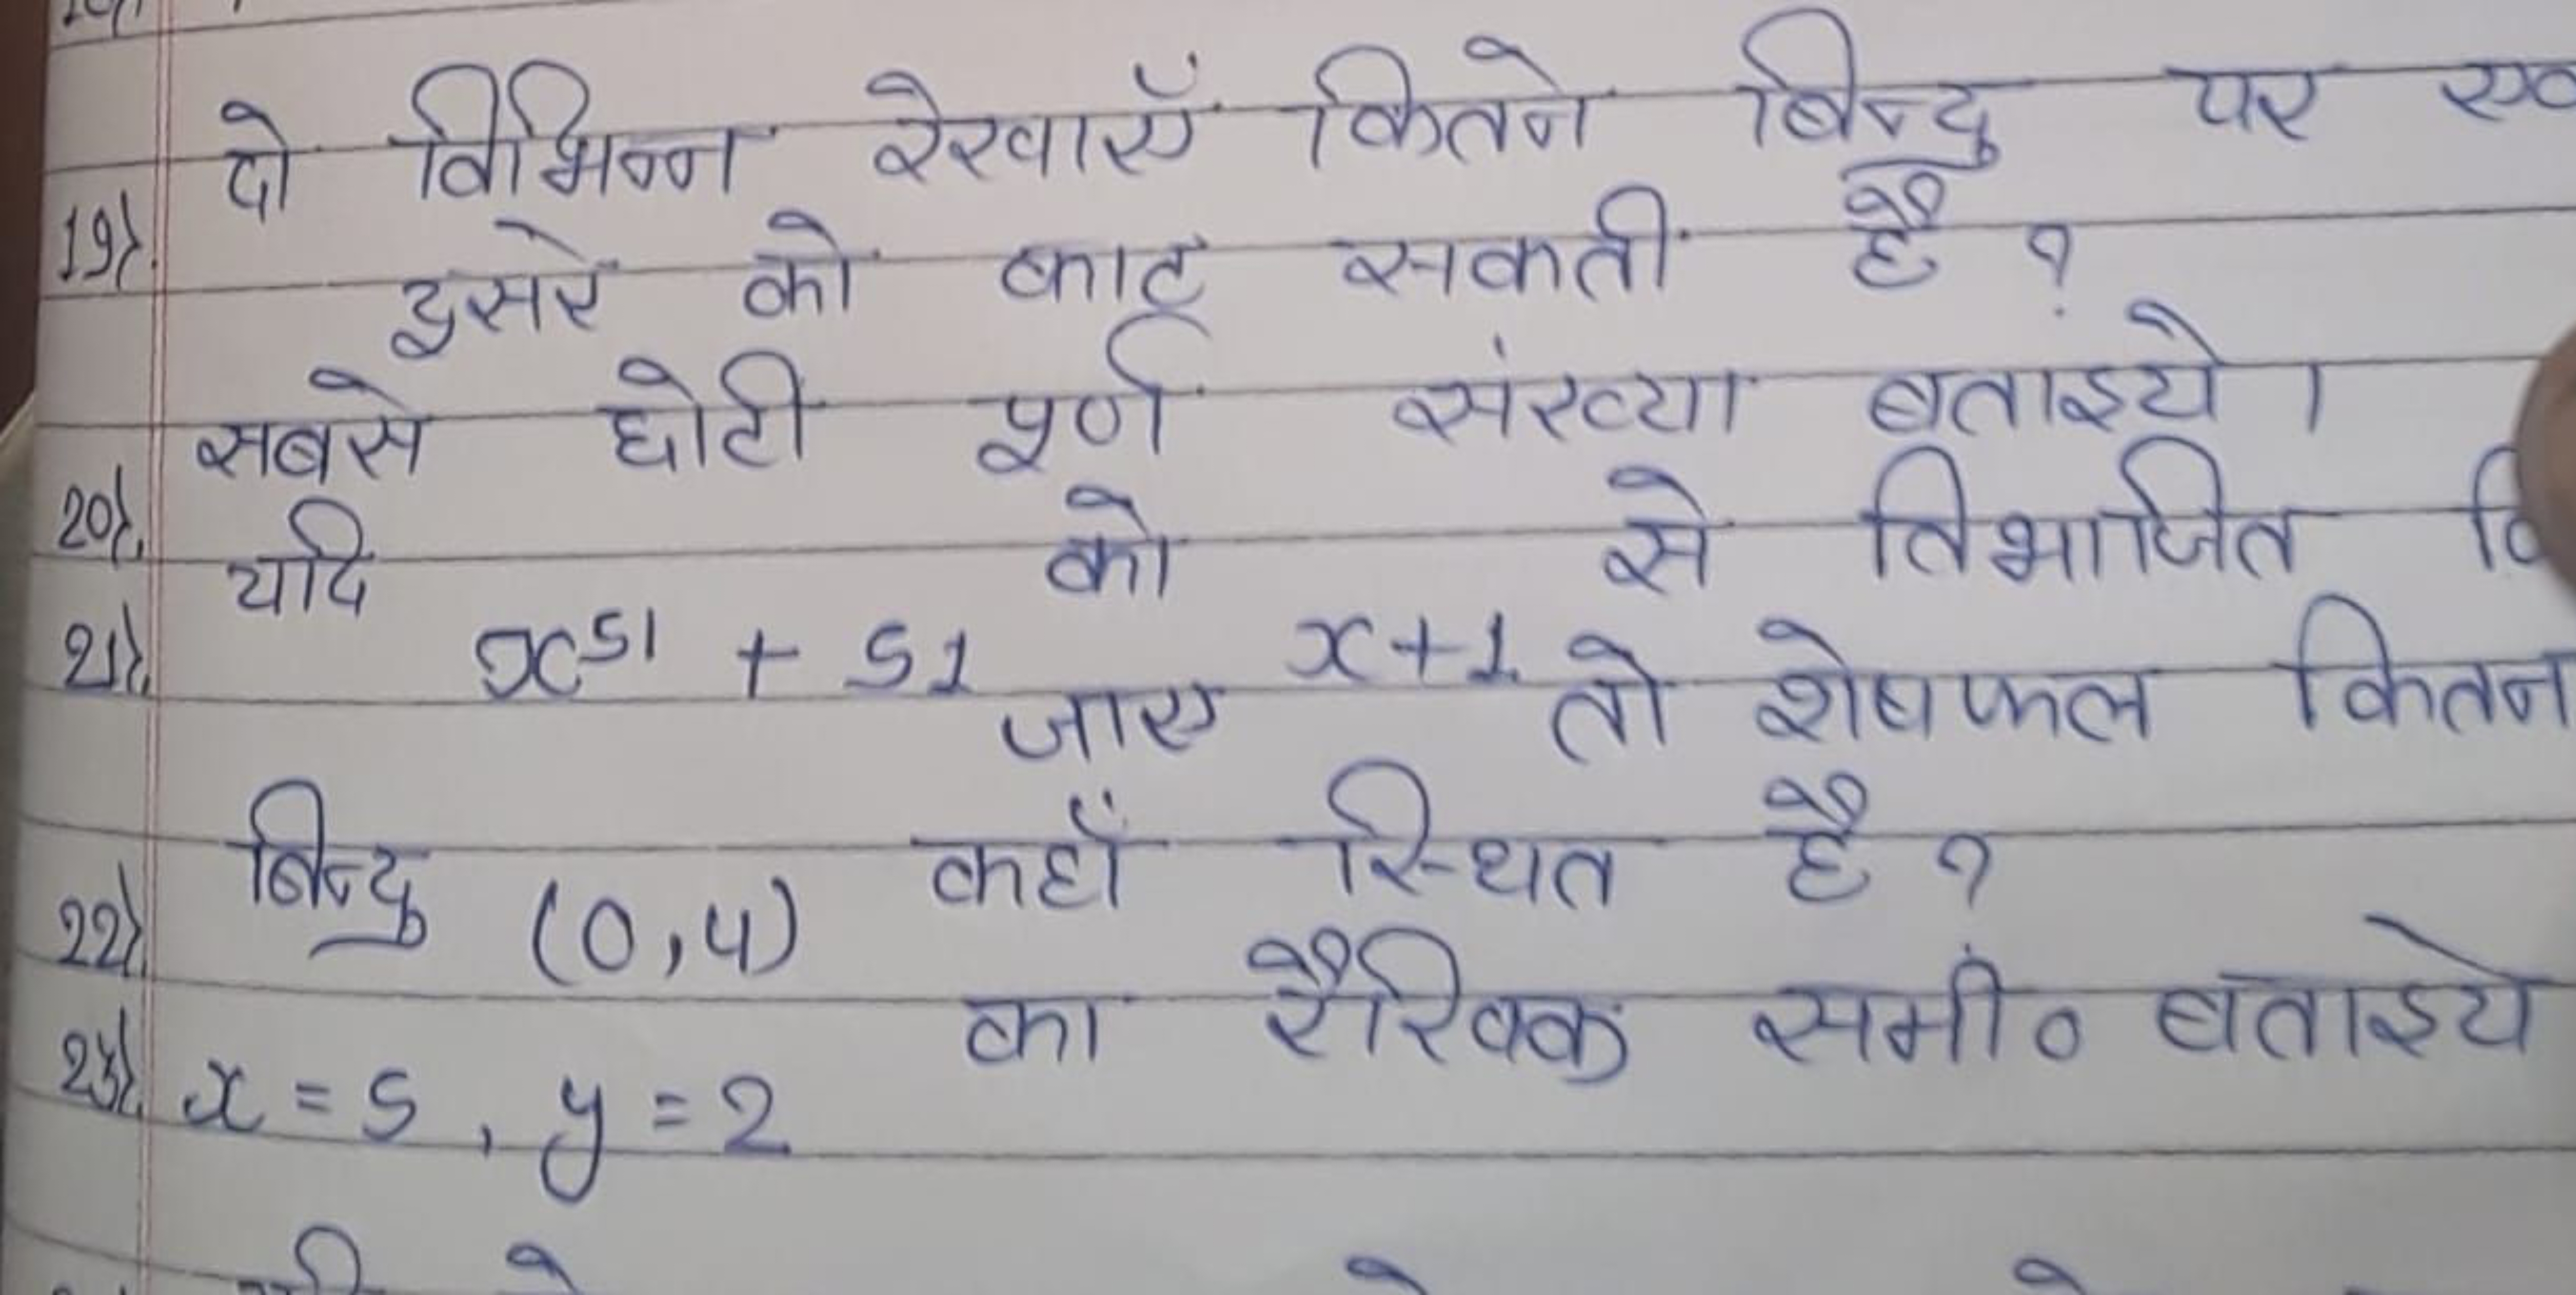 19). दो विभिन्न रेखाएँ कितने बिन्दु पर
दुसरे को काट सकती है ?
20). सबसे छोटी पूर्ण संख्या बताइये ।
21). यदि x⁵¹ + 51 को x+1 से विभाजित
जाए तो शेषफल
22). बिन्दु (0,4) कहाँ स्थित है ?
23). x = 5 , y = 2 का रैखिक समी० बताइये